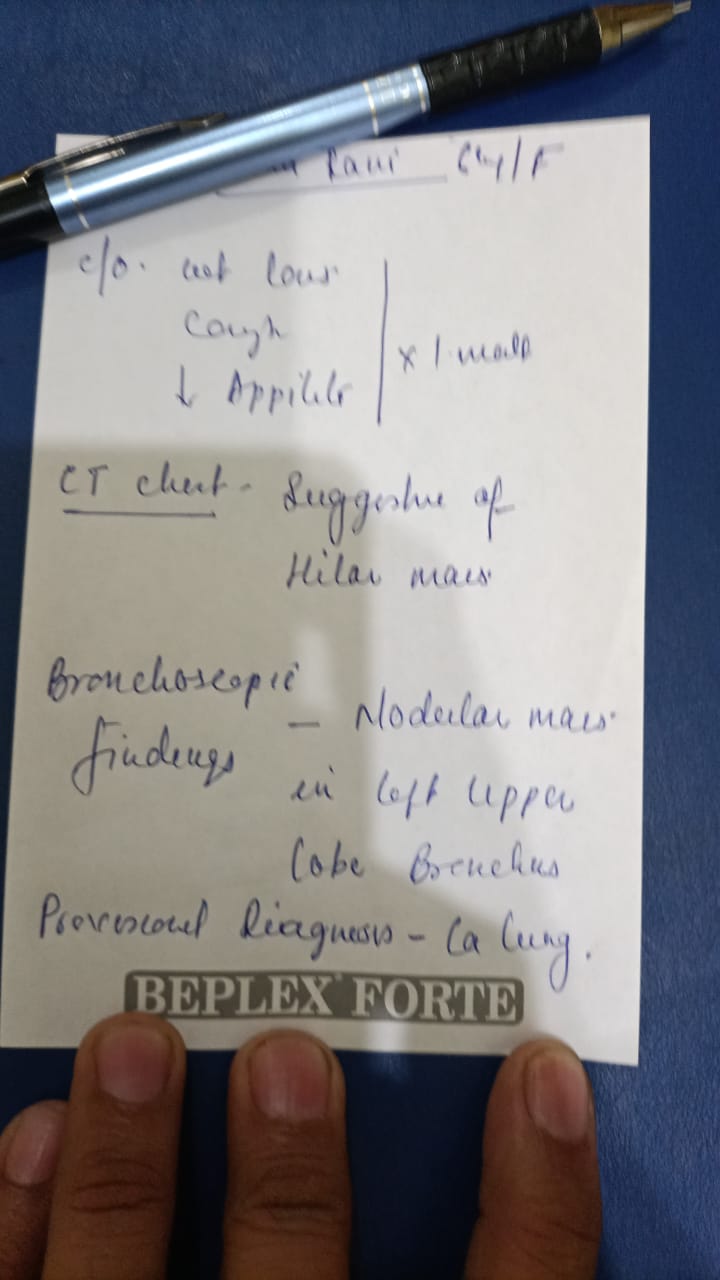 Rani 64/F
c/o. wt loss
Cough
↓ Appitite
x 1 month
CT chest - Suggestive of
Hilar mass
Bronchoscopic
findings - Nodular mass
in left Upper
Lobe Bronchus
Provisional Diagnosis - Ca lung.
BEPLEX FORTE